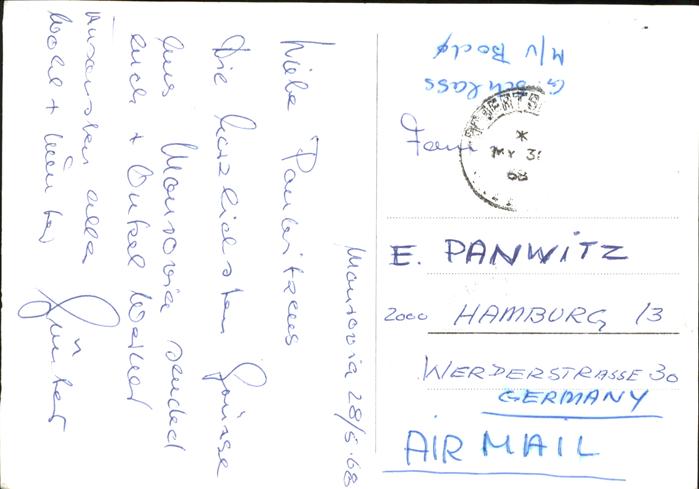 Monrovia 28/5.68
Liebe Panwitzens
Die herzlichsten Grüsse
aus Monrovia sendet
euch + Onkel Werner
Ansonsten alles
wohl + munter
Günter
G. Schlass
M/V Bodø
Fam
MY 31
68
E. PANWITZ
2000 HAMBURG 13
WERDERSTRASSE 30
GERMANY
AIR MAIL